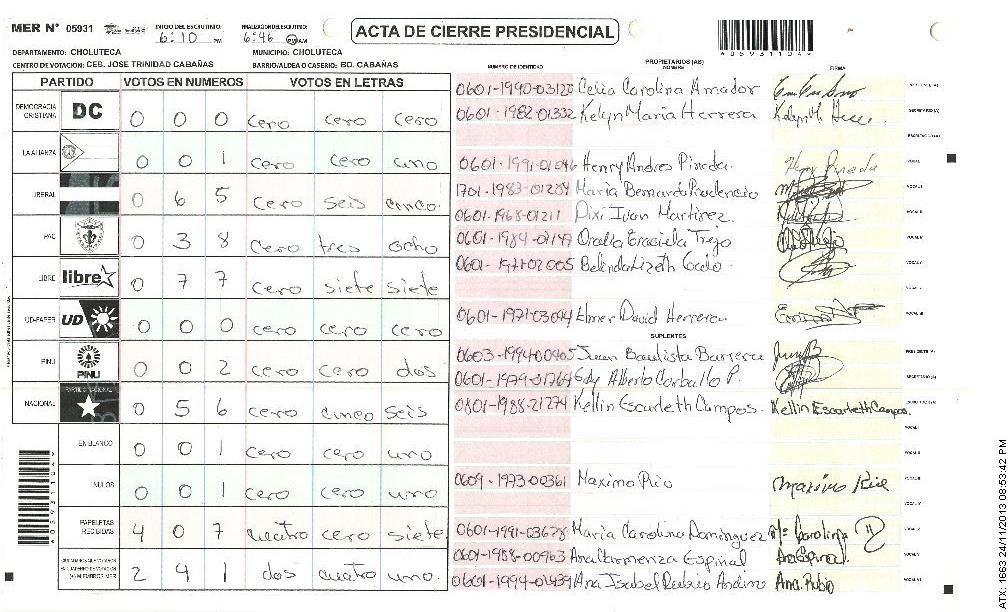 MER N° 05931 INICIO DEL ESCRUTINIO: 6:10 PM FINALIZACION DEL ESCRUTINIO: 6:46 PM ACTA DE CIERRE PRESIDENCIAL
DEPARTAMENTO: CHOLUTECA MUNICIPIO: CHOLUTECA
CENTRO DE VOTACION: CEB. JOSE TRINIDAD CABAÑAS BARRIO/ALDEA O CASERIO: BO. CABAÑAS
PARTIDO VOTOS EN NUMEROS VOTOS EN LETRAS
DEMOCRACIA CRISTIANA DC 0 0 0 cero cero cero
LA ALIANZA 0 0 1 cero cero uno
LIBERAL 0 6 5 cero seis cinco
PAC 0 3 8 cero tres ocho
LIBRE libre 0 7 7 cero siete siete
UD-FAPER UD 0 0 0 cero cero cero
PINU PINU 0 0 2 cero cero dos
NACIONAL 0 5 6 cero cinco seis
EN BLANCO 0 0 1 cero cero uno
NULOS 0 0 1 cero cero uno
PAPELETAS RECIBIDAS 4 0 7 cuatro cero siete
2 4 1 dos cuatro uno
NUMERO DE IDENTIDAD PROPIETARIOS (AS) NOMBRE FIRMA
0601-1990-03120 Celia Carolina Amador
0601-1982-01332 Kelyn Maria Herrera
0601-1991-01046 Henry Andres Pineda Henry Pineda
1701-1983-01284 Maria Bernarda Prudencio
0601-1968-01211 Dixi Ivan Martinez
0601-1984-01147 Oralia Graciela Trejo
0601-1971-02005 Belinda Lizeth
0601-1971-03094 Elmer David Herrera
SUPLENTES
0603-1994-00405 Juan Bautista Barrera
0601-1979-01764 Edy Alberto Carballo P.
0801-1988-21274 Kellin Escarleth Campos Kellin Escarleth Campos
0609-1973-00361 Maximo Rio
0601-1991-03678 Maria Carolina Dominguez
0601-1988-00963 Ana Carmenza Espinal
0601-1994-01439 Ana Isabel Rubio Andino Ana Rubio
4059311044
ATX: 1663 24/11/2013 08:53:42 PM